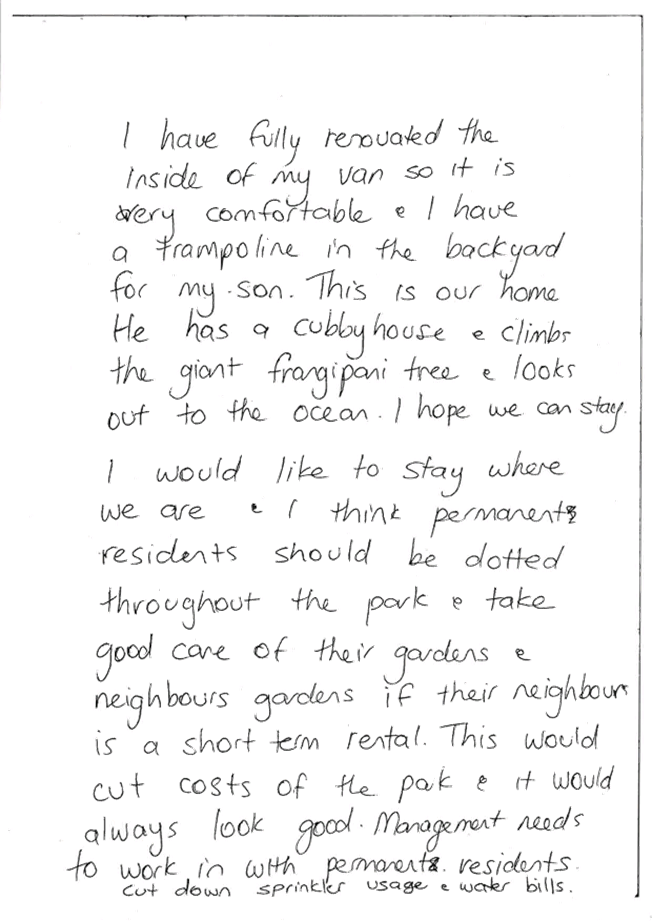 I have fully renovated the
inside of my van so it is
very comfortable e I have
a trampoline in the backyard
for my son. This is our home
He has a cubbyhouse e climbs
the giant frangipani tree e looks
out to the ocean. I hope we can stay.
I would like to stay where
we are e I think permanent
residents should be dotted
throughout the park e take
good care of their gardens e
neighbours gardens if their neighbour
is a short term rental. This would
cut costs of the pak e it would
always look good. Management needs
to work in with permanent residents.
cut down sprinkler usage e water bills.